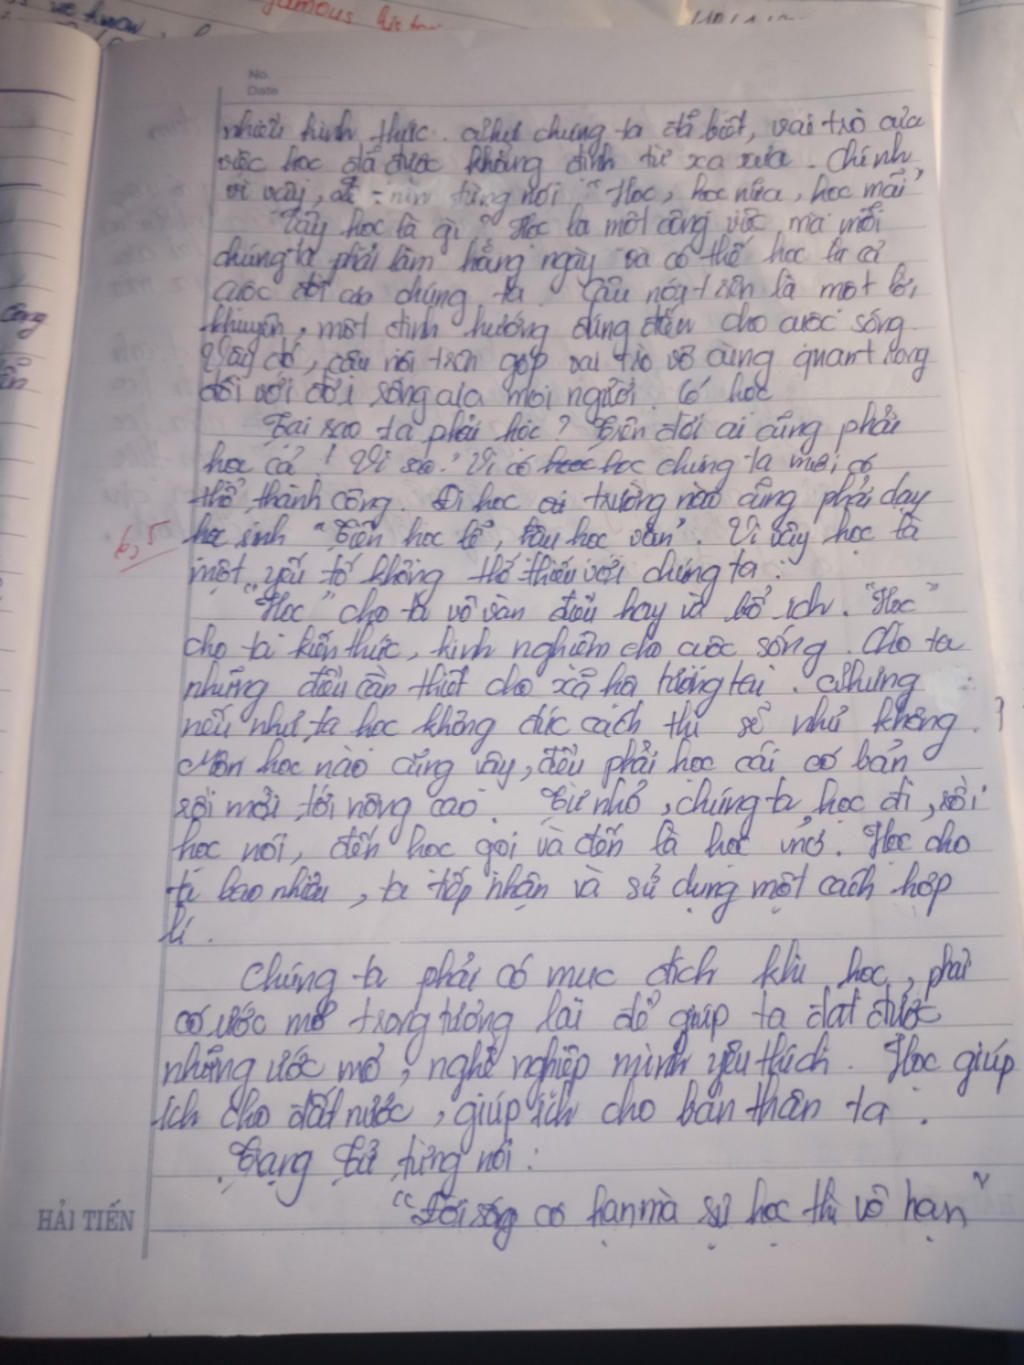 No.
Date
nhiều hình thức. Như chúng ta đã biết, vai trò của
việc học đã được khẳng định từ xa xưa. Chính
vì vậy, từng nói "Học, học nữa, học mãi"
Vậy học là gì? Học là một công việc mà mỗi
chúng ta phải làm hằng ngày và có thể học là cả
cuộc đời của chúng ta. Câu nói trên là một lời
khuyên, một định hướng đúng đắn cho cuộc sống.
câu nói trên góp vai trò vô cùng quan trọng
đối với đời sống của mọi người. học
Tại sao ta phải học? Trên đời ai cũng phải
học cả! Vì sao? Vì có học chúng ta mới có
thể thành công. Đi học trường nào cũng phải dạy
học sinh "Tiên học lễ, hậu học văn". Vì vậy học là
6,5
một yếu tố không thể thiếu với chúng ta.
"Học" cho ta vô vàn điều hay và bổ ích. "Học"
cho ta kiến thức, kinh nghiệm cho cuộc sống. Cho ta
những điều cần thiết cho xã hội tương lai. Nhưng
nếu như ta học không đúc cách thì sẽ như không. ?
Môn học nào cũng vậy, đều phải học cái cơ bản
rồi mới tới nâng cao. Từ nhỏ, chúng ta học đi, rồi
học nói, đến học gói và đến là học mở. Học cho
ta bao nhiêu, ta tiếp nhận và sử dụng một cách hợp
lí.
Chúng ta phải có mục đích khi học, phải
có ước mơ trong tương lai để giúp ta đạt được
những ước mơ, nghề nghiệp mình yêu thích. Học giúp
ích cho đất nước, giúp ích cho bản thân ta.
Trang Tử từng nói:
"Đời sống có hạn mà sự học thì vô hạn"
HẢI TIẾN